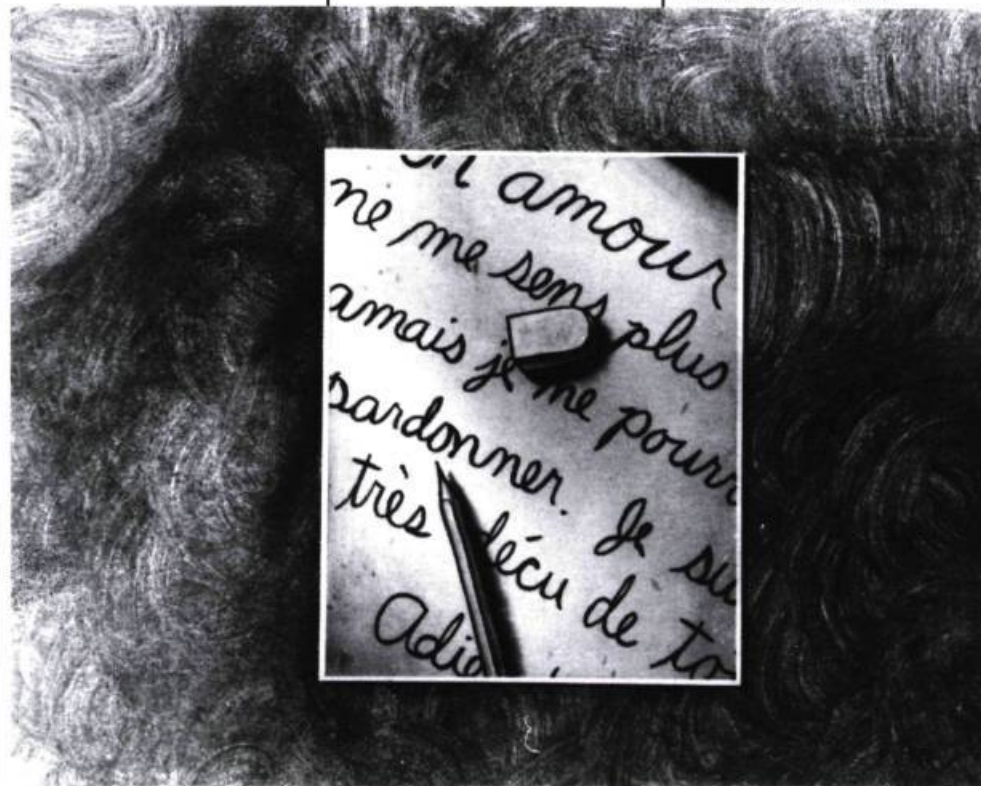 amour
ne me sens plus
amais je me pourr
pardonner. Je su
très décu de to
Adie